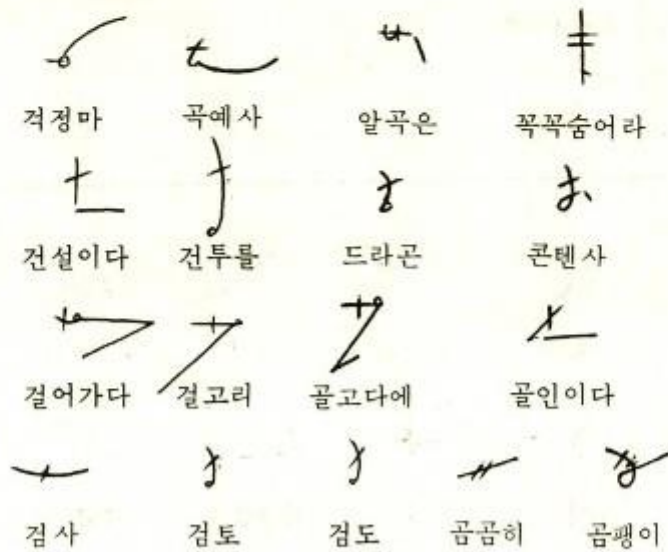 걱정마 곡예사 알곡은 꼭꼭숨어라
건설이다 건투를 드라곤 콘텐사
걸어가다 걸고리 골고다에 골인이다
검사 검토 검도 곰곰히 곰팽이